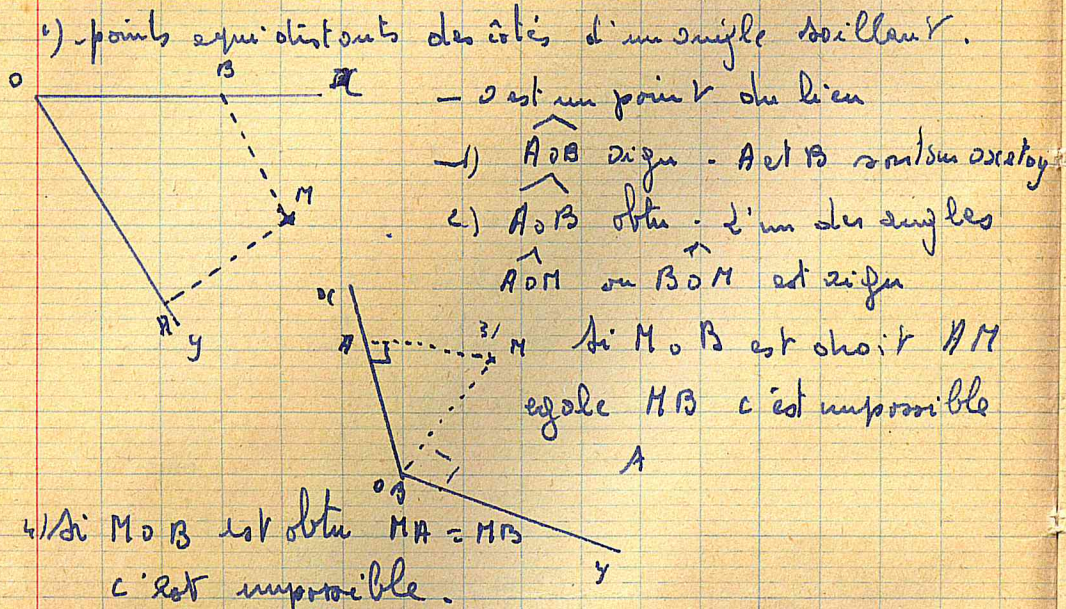 1) - points equidistants des cotés d'un angle saillant.
O B x
- O est un point du lieu
1) AOB aigu - A et B sont sur ox et oy
M
2) AOB obtu - L'un des angles
AOM ou BOM est aigu
A y
x
A 3/ M Si MOB est droit AM
egale MB c'est impossible
A
O B
4) Si MOB est obtu MA = MB
y
c'est impossible.